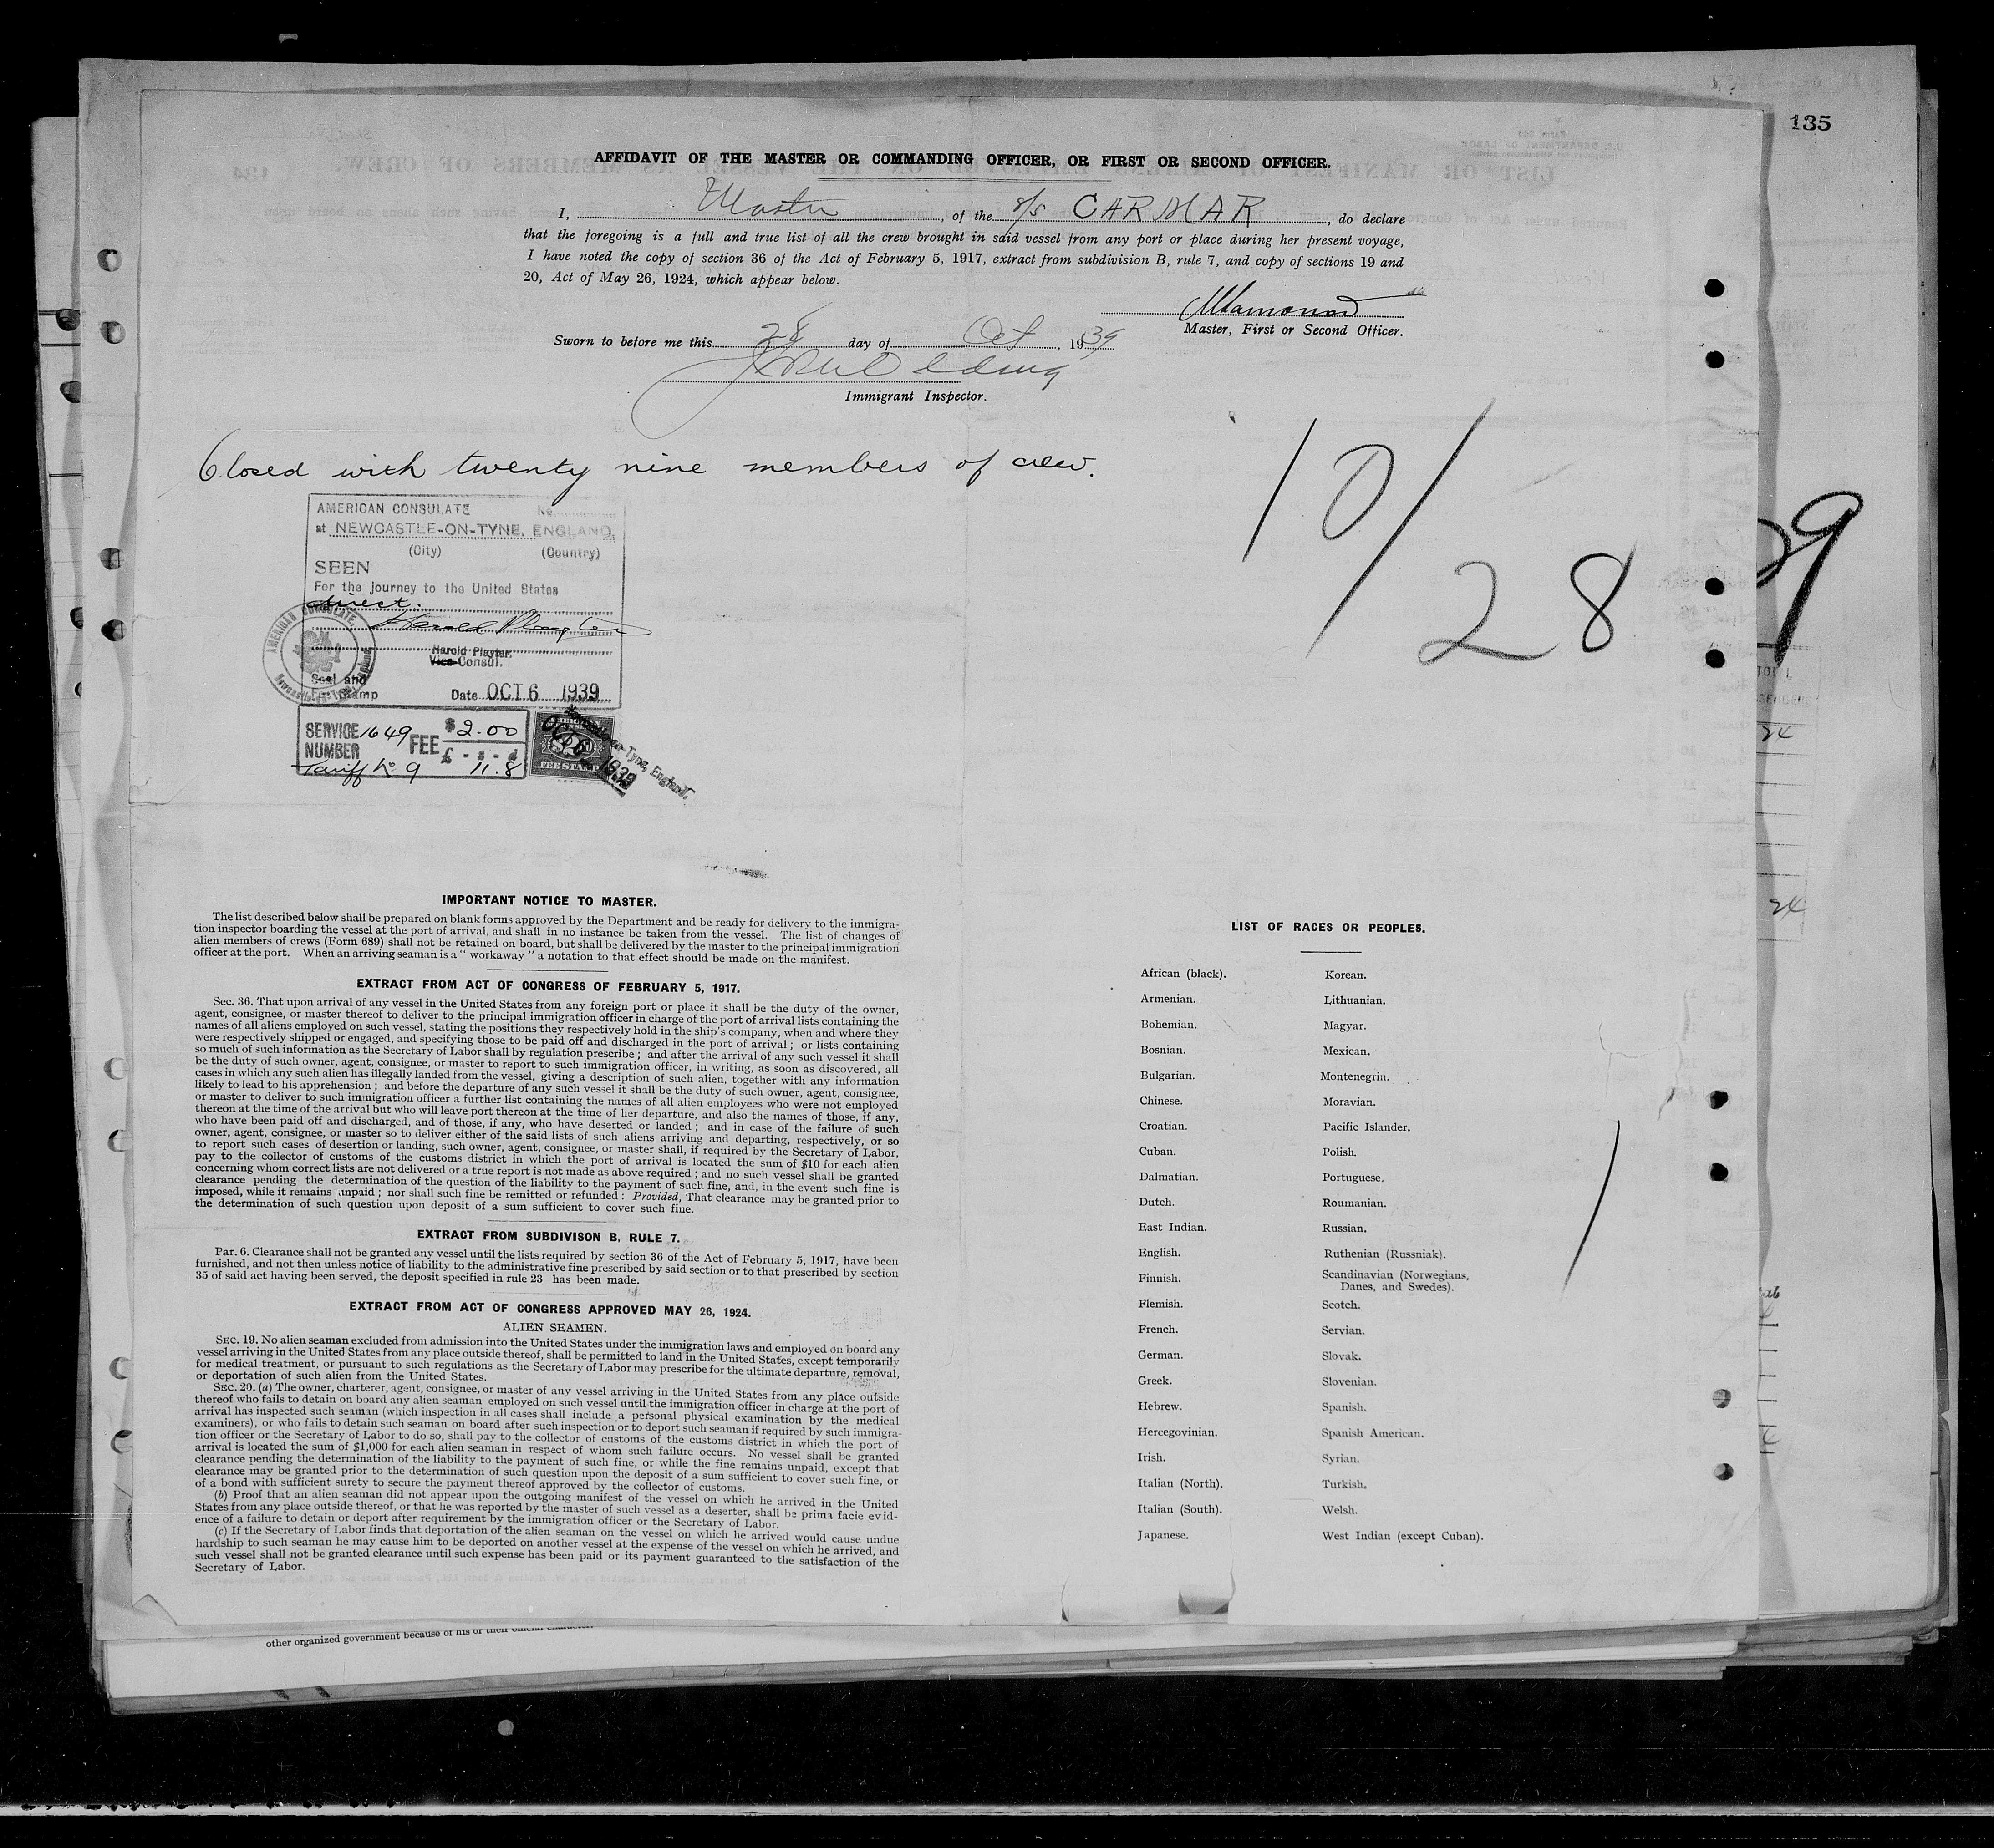 135
AFFIDAVIT OF THE MASTER OR COMMANDING OFFICER, OR FIRST OR SECOND OFFICER.
I, Master, of the s/s CARMAR, do declare
that the foregoing is a full and true list of all the crew brought in said vessel from any port or place during her present voyage,
I have noted the copy of section 36 of the Act of February 5, 1917, extract from subdivision B, rule 7, and copy of sections 19 and
20, Act of May 26, 1924, which appear below.
Master, First or Second Officer.
Sworn to before me this 28 day of Oct, 1939
Immigrant Inspector.
Closed with twenty nine members of crew.
10/28
29
AMERICAN CONSULATE No.
at NEWCASTLE-ON-TYNE, ENGLAND.
(City) (Country)
SEEN
For the journey to the United States
direct.
Harold Playter
Harold Playter.
Vice Consul.
AMERICAN CONSULATE
Seal and
Fee Stamp
Date OCT 6 1939
SERVICE NUMBER 1649 FEE $2.00
£ - s - d
Tariff No 9 11.8
FEE STAMP
OCT 6 1939
Newcastle-on-Tyne, England.
24
24
IMPORTANT NOTICE TO MASTER.
The list described below shall be prepared on blank forms approved by the Department and be ready for delivery to the immigra-
tion inspector boarding the vessel at the port of arrival, and shall in no instance be taken from the vessel. The list of changes of
alien members of crews (Form 689) shall not be retained on board, but shall be delivered by the master to the principal immigration
officer at the port. When an arriving seaman is a " workaway " a notation to that effect should be made on the manifest.
EXTRACT FROM ACT OF CONGRESS OF FEBRUARY 5, 1917.
Sec. 36. That upon arrival of any vessel in the United States from any foreign port or place it shall be the duty of the owner,
agent, consignee, or master thereof to deliver to the principal immigration officer in charge of the port of arrival lists containing the
names of all aliens employed on such vessel, stating the positions they respectively hold in the ship's company, when and where they
were respectively shipped or engaged, and specifying those to be paid off and discharged in the port of arrival ; or lists containing
so much of such information as the Secretary of Labor shall by regulation prescribe ; and after the arrival of any such vessel it shall
be the duty of such owner, agent, consignee, or master to report to such immigration officer, in writing, as soon as discovered, all
cases in which any such alien has illegally landed from the vessel, giving a description of such alien, together with any information
likely to lead to his apprehension ; and before the departure of any such vessel it shall be the duty of such owner, agent, consignee,
or master to deliver to such immigration officer a further list containing the names of all alien employees who were not employed
thereon at the time of the arrival but who will leave port thereon at the time of her departure, and also the names of those, if any,
who have been paid off and discharged, and of those, if any, who have deserted or landed ; and in case of the failure of such
owner, agent, consignee, or master so to deliver either of the said lists of such aliens arriving and departing, respectively, or so
to report such cases of desertion or landing, such owner, agent, consignee, or master shall, if required by the Secretary of Labor,
pay to the collector of customs of the customs district in which the port of arrival is located the sum of $10 for each alien
concerning whom correct lists are not delivered or a true report is not made as above required ; and no such vessel shall be granted
clearance pending the determination of the question of the liability to the payment of such fine, and, in the event such fine is
imposed, while it remains unpaid ; nor shall such fine be remitted or refunded : Provided, That clearance may be granted prior to
the determination of such question upon deposit of a sum sufficient to cover such fine.
EXTRACT FROM SUBDIVISON B, RULE 7.
Par. 6. Clearance shall not be granted any vessel until the lists required by section 36 of the Act of February 5, 1917, have been
furnished, and not then unless notice of liability to the administrative fine prescribed by said section or to that prescribed by section
35 of said act having been served, the deposit specified in rule 23 has been made.
EXTRACT FROM ACT OF CONGRESS APPROVED MAY 26, 1924.
ALIEN SEAMEN.
SEC. 19. No alien seaman excluded from admission into the United States under the immigration laws and employed on board any
vessel arriving in the United States from any place outside thereof, shall be permitted to land in the United States, except temporarily
for medical treatment, or pursuant to such regulations as the Secretary of Labor may prescribe for the ultimate departure, removal,
or deportation of such alien from the United States.
SEC. 20. (a) The owner, charterer, agent, consignee, or master of any vessel arriving in the United States from any place outside
thereof who fails to detain on board any alien seaman employed on such vessel until the immigration officer in charge at the port of
arrival has inspected such seaman (which inspection in all cases shall include a personal physical examination by the medical
examiners), or who fails to detain such seaman on board after such inspection or to deport such seaman if required by such immigra-
tion officer or the Secretary of Labor to do so, shall pay to the collector of customs of the customs district in which the port of
arrival is located the sum of $1,000 for each alien seaman in respect of whom such failure occurs. No vessel shall be granted
clearance pending the determination of the liability to the payment of such fine, or while the fine remains unpaid, except that
clearance may be granted prior to the determination of such question upon the deposit of a sum sufficient to cover such fine, or
of a bond with sufficient surety to secure the payment thereof approved by the collector of customs.
(b) Proof that an alien seaman did not appear upon the outgoing manifest of the vessel on which he arrived in the United
States from any place outside thereof, or that he was reported by the master of such vessel as a deserter, shall be prima facie evid-
ence of a failure to detain or deport after requirement by the immigration officer or the Secretary of Labor.
(c) If the Secretary of Labor finds that deportation of the alien seaman on the vessel on which he arrived would cause undue
hardship to such seaman he may cause him to be deported on another vessel at the expense of the vessel on which he arrived, and
such vessel shall not be granted clearance until such expense has been paid or its payment guaranteed to the satisfaction of the
Secretary of Labor.
LIST OF RACES OR PEOPLES.
African (black).
Armenian.
Bohemian.
Bosnian.
Bulgarian.
Chinese.
Croatian.
Cuban.
Dalmatian.
Dutch.
East Indian.
English.
Finnish.
Flemish.
French.
German.
Greek.
Hebrew.
Hercegovinian.
Irish.
Italian (North).
Italian (South).
Japanese.
Korean.
Lithuanian.
Magyar.
Mexican.
Montenegrin.
Moravian.
Pacific Islander.
Polish.
Portuguese.
Roumanian.
Russian.
Ruthenian (Russniak).
Scandinavian (Norwegians,
Danes, and Swedes).
Scotch.
Servian.
Slovak.
Slovenian.
Spanish.
Spanish American.
Syrian.
Turkish.
Welsh.
West Indian (except Cuban).
other organized government because of his or their official